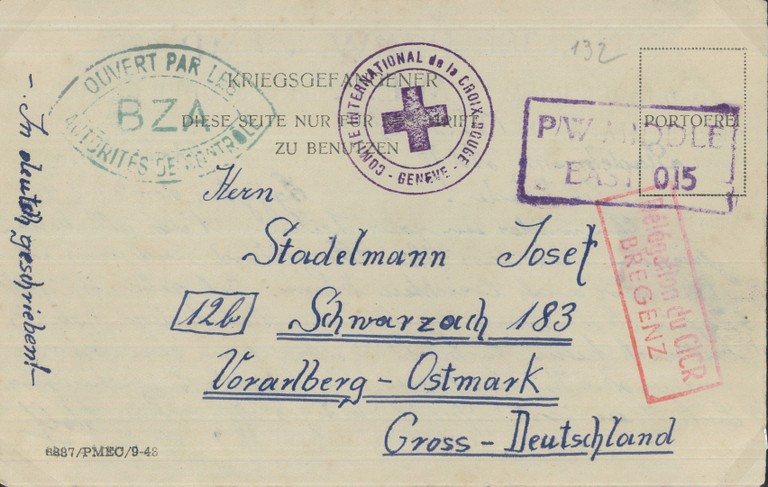 132
OUVERT PAR LES
BZA
AUTORITÉS DE CONTRÔLE
COMITÉ INTERNATIONAL de la CROIX-ROUGE
- GENÈVE -
KRIEGSGEFANGENER
DIESE SEITE NUR FÜR ANSCHRIFT
ZU BENUTZEN
PORTOFREI
P/W MIDDLE
EAST 015
Délégation du CICR
BREGENZ
-. In deutsch geschrieben! -
Herrn
Stadelmann Josef
12b Schwarzach 183
Vorarlberg - Ostmark
Gross - Deutschland
6887/PMEC/9-43